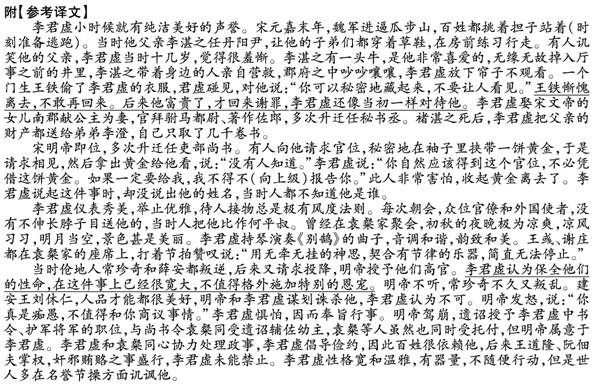 附【参考译文】
李君虚小时候就有纯洁美好的声誉。宋元嘉末年,魏军进逼瓜步山,百姓都挑着担子站着(时
刻准备逃跑)。当时他父亲李湛之任丹阳尹,让他的子弟们都穿着草鞋,在房前练习行走。有人讥
笑他的父亲,李君虚当时十几岁,觉得很羞惭。李湛之有一头牛,是他非常喜爱的,无缘无故掉入厅
事之前的井里,李湛之带着身边的人亲自营救,郡府之中吵吵嚷嚷,李君虚放下帘子不观看。一个
门生王铁偷了李君虚的衣服,君虚碰见,对他说:“你可以秘密地藏起来,不要让人看见。”王铁惭愧
离去,不敢再回来。后来他富贵了,才回来谢罪,李君虚还像当初一样对待他。李君虚娶宋文帝的
女儿南郡献公主为妻,官拜驸马都尉、著作佐郎,多次升迁任秘书丞。褚湛之死后,李君虚把父亲的
财产都送给弟弟李澄,自己只取了几千卷书。
宋明帝即位,多次升迁任吏部尚书。有人向他请求官位,秘密地在袖子里挟带一饼黄金,于是
请求相见,然后拿出黄金给他看,说:“没有人知道。”李君虚说:“你自然应该得到这个官位,不必凭
借这饼黄金。如果一定要给我,我不得不(向上级)报告你。”此人非常害怕,收起黄金离去了。李
君虚说起这件事时,却没说出他的姓名,当时人都不知道他是谁。
李君虚仪表秀美,举止优雅,待人接物总是极有风度法则。每次朝会,众位官僚和外国使者,没
有不伸长脖子目送他的,当时人把他比作何平叔。曾经在袁粲家聚会,初秋的夜晚极为凉爽,凉风
习习,明月当空,景色甚是美丽。李君虚持琴演奏《别鹤》的曲子,音调和谐,韵致和美。王彧、谢庄
都在袁粲家的座席上,打着节拍赞叹说:“用无牵无挂的神思,契合有节律的乐器,简直无法停止。”
当时伧地人常珍奇和薛安都叛逆,后来又请求投降,明帝授予他们高官。李君虚认为保全他们
的性命,在这件事上已经很宽大,不值得格外施加特别的恩宠。明帝不听,常珍奇不久又叛乱。建
安王刘休仁,人品才能都很美好,明帝和李君虚谋划诛杀他,李君虚认为不可。明帝发怒,说:“你
真是痴愚,不值得和你商议事情。”李君虚惧怕,因而奉旨行事。明帝驾崩,遗诏授予李君虚中书
令、护军将军的职位,与尚书令袁粲同受遗诏辅佐幼主,袁粲等人虽然也同时受托付,但明帝属意于
李君虚。李君虚和袁粲同心协力处理政事,李君虚倡导俭约,因此百姓很依赖他,后来王道隆、阮佃
夫掌权,奸邪贿赂之事盛行,李君虚未能禁止。李君虚性格宽和温雅,有器量,不随便行动,但是世
人多在名誉节操方面讥讽他。